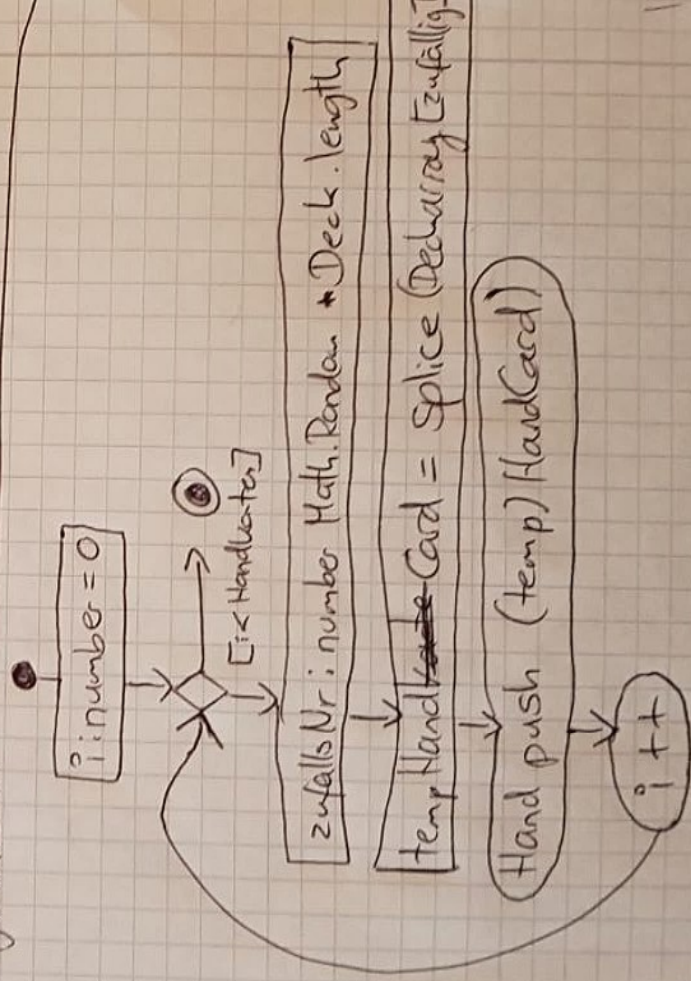 i: number = 0
[i < Handkarten]
zufallsNr: number Math.Random * Deck.length
temp Hand Card = Splice (Deckarray [zufällig
Hand push (temp) HandCard)
i ++